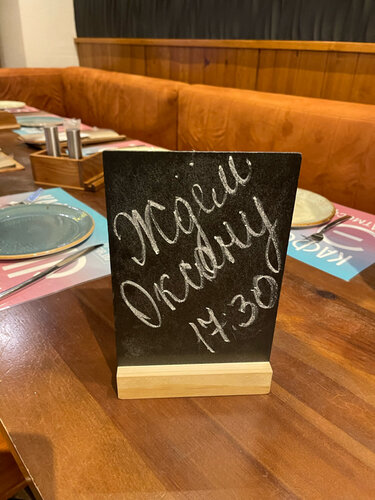 Ждём
Оксану
17:30
КАФЕ